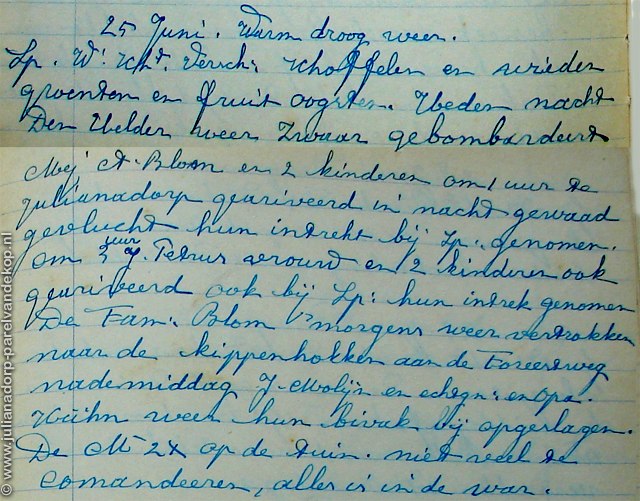 25 Juni. Warm droog weer.
Sp. W. Kht. Versch: schoffelen en wieden
groenten en fruit oogsten. Heden nacht
Den Helder weer zwaar gebombardeert
Mej A. Blom en 2 kinderen om 1 uur te
Julianadorp gearriveerd in nacht gewaad
gevlucht hun intrekt bij Sp. genomen.
om 3 uur J. Tetrus vrouw en 2 kinderen ook
gearriveerd ook bij Sp: hun intrek genomen
De Fam: Blom 's morgens weer vertrokken
naar de kippenhokken aan de Foreestweg
nademiddag J. Molijn en echtgn: en Opa.
Kühn weer hun bivak bij opgerlagen.
De M 2x op de tuin. niet veel te
comandeeren, alles is in de war.
© www.julianadorp-parelvandekop.nl